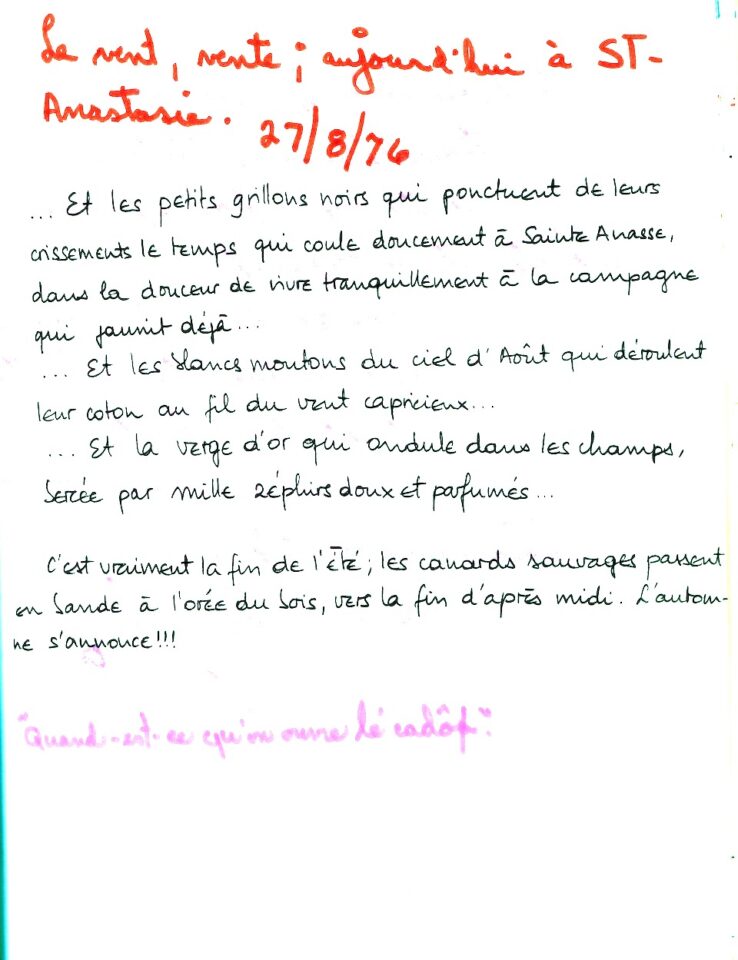 Le vent, vente; aujourd'hui à ST-
Anastasie.
27/8/76
... Et les petits grillons noirs qui ponctuent de leurs
crissements le temps qui coule doucement à Sainte Anasse,
dans la douceur de vivre tranquillement à la campagne
qui jaunit déjà...
... Et les blancs moutons du ciel d'Août qui déroulent
leur coton au fil du vent capricieux...
... Et la verge d'or qui ondule dans les champs,
bercée par mille zéphirs doux et parfumés...
C'est vraiment la fin de l'été; les canards sauvages passent
en bande à l'orée du bois, vers la fin d'après midi. L'autom-
ne s'annonce!!!
"Quand-est-ce qu'on ouvre lé cadôf".